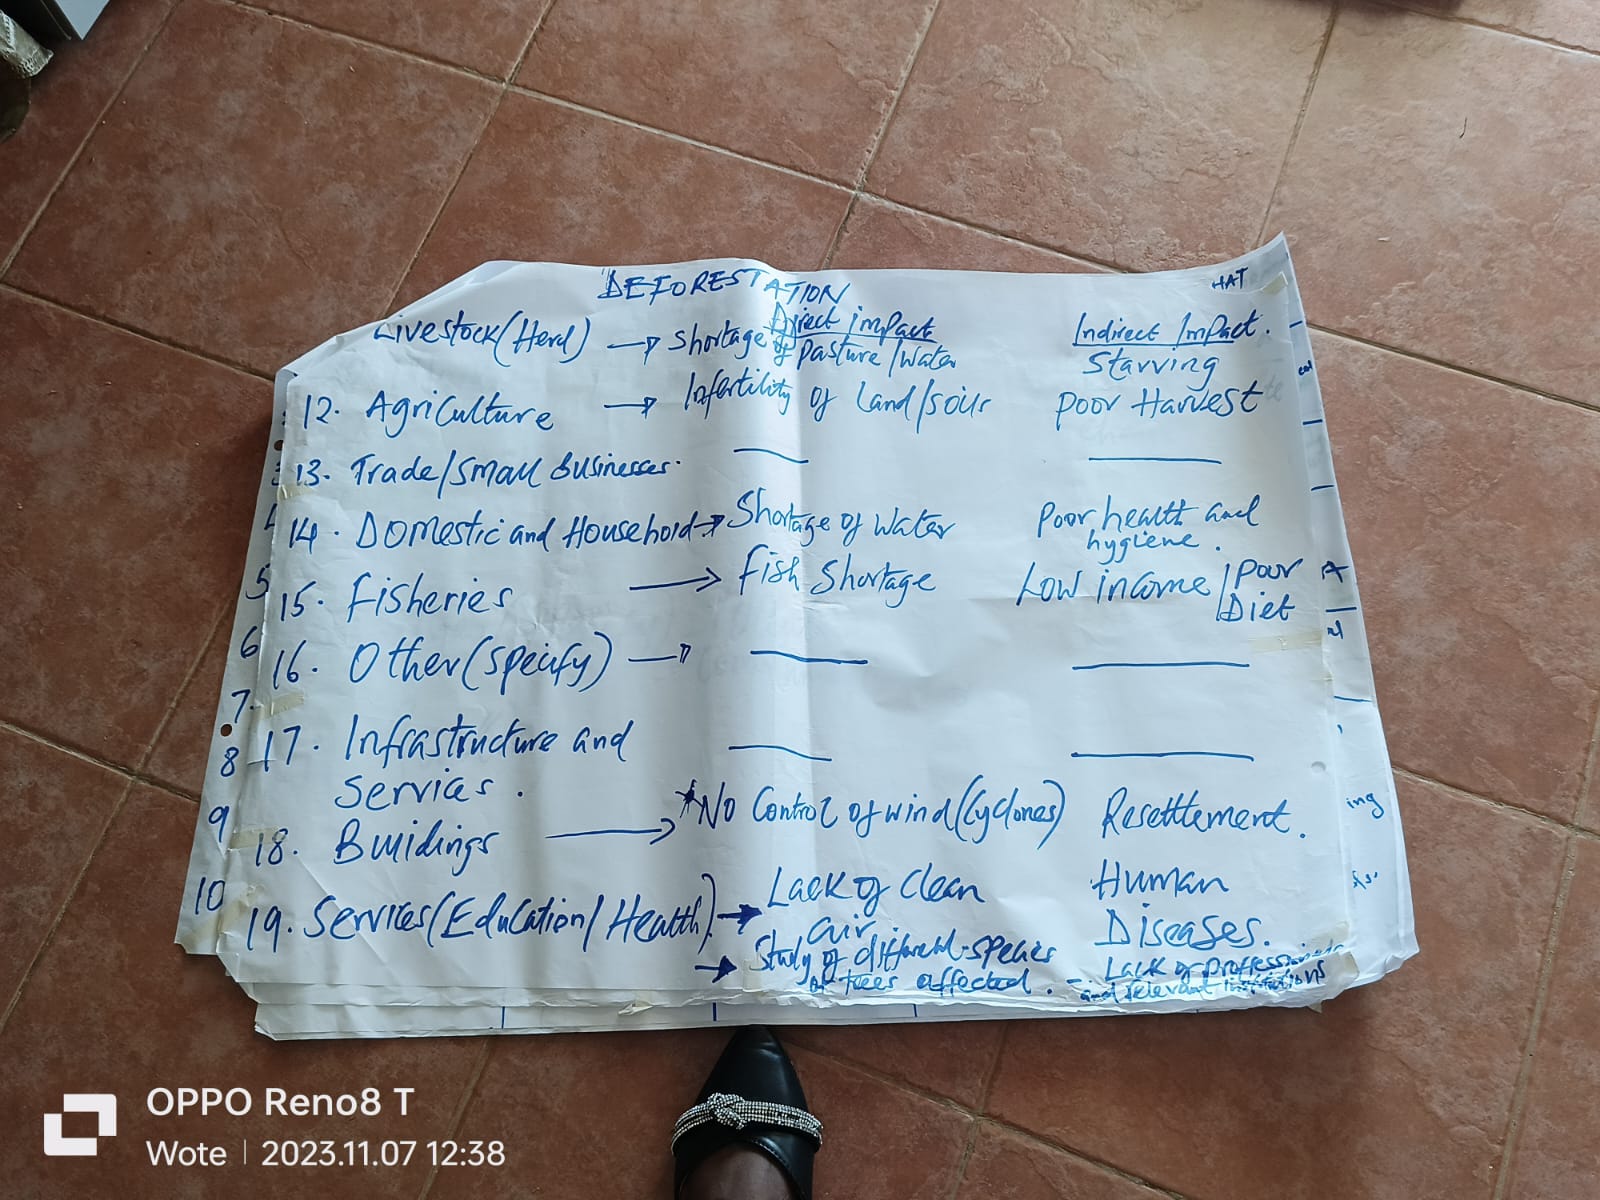 DEFORESTATION
HAT
Direct impact
Indirect Impact.
Livestock(Herd) → Shortage of Pasture/Water
Starving
12. Agriculture → Infertility of Land/soils
Poor Harvest
13. Trade/Small Businesses.
14. Domestic and Household → Shortage of Water
Poor health and
hygiene.
15. Fisheries → Fish Shortage
Low income/Poor
Diet
16. Other(specify) →
17. Infrastructure and
Services.
18. Buildings → *No Control of wind(Cyclones)
Resettlement.
19. Services(Education/Health). → Lack of clean
air
Human
Diseases.
→ Study of different species
of trees affected.
- Lack of professionals
and relevant institutions
5
6
7.
8
9
10
ing
OPPO Reno8 T
Wote | 2023.11.07 12:38